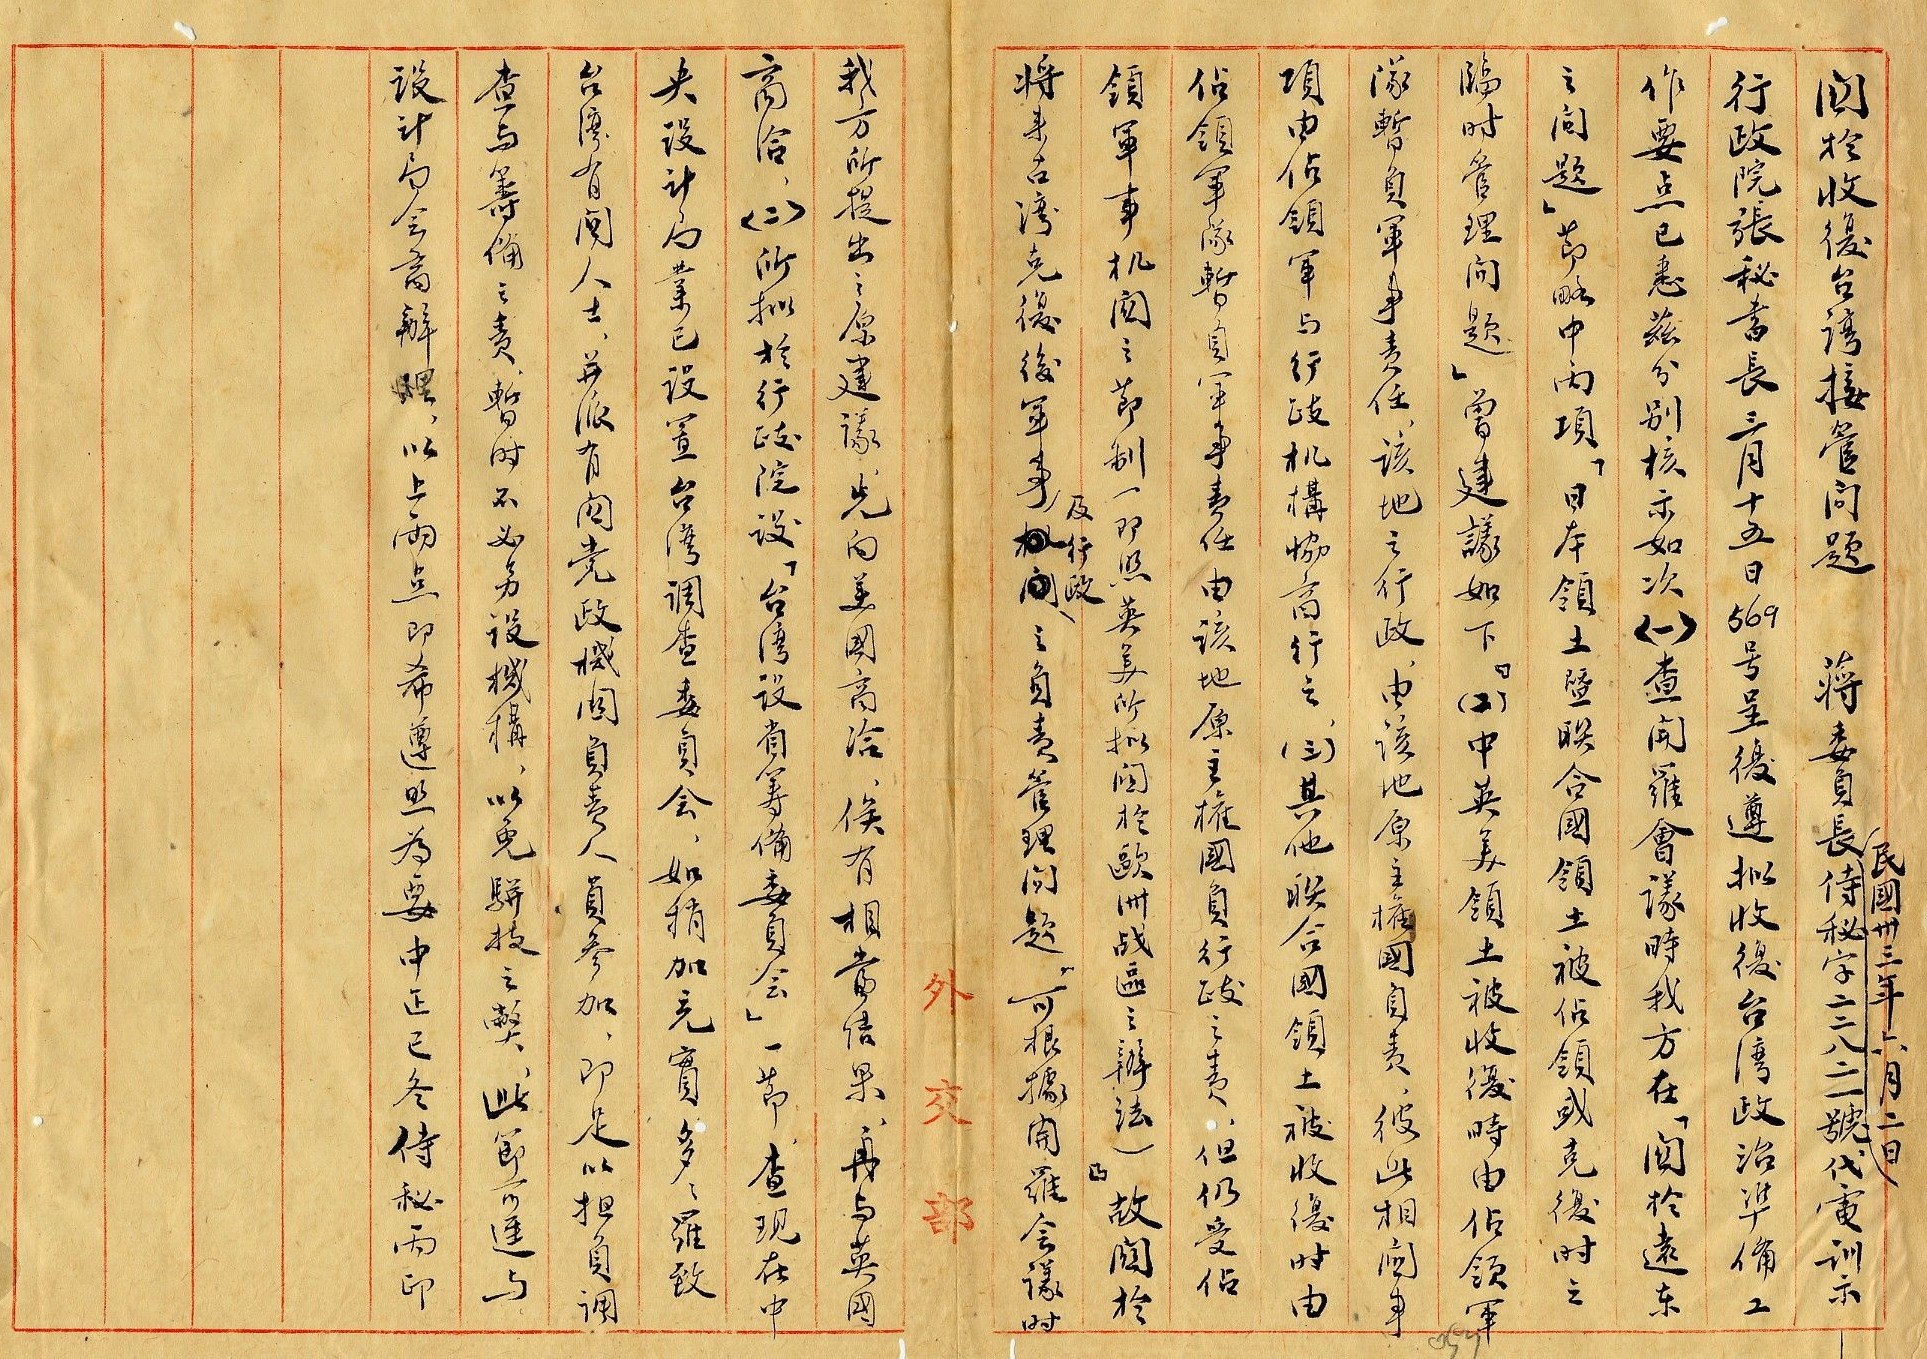 關於收復台灣接管問題 蔣委員長侍秘字二二八二一號代電訓示
民國卅三年六月二日
行政院張秘書長三月十五日569号呈復遵拟收復台湾政治準備工
作要点已悉茲分別核示如次(一)查開羅會議時我方在「関於遠東
之问題」節略中丙項「日本領土暨联合國領土被佔領或克復时之
臨时管理问題」曾建議如下『(2)中英美領土被收復時由佔領軍
隊暫負軍事責任、該地之行政、由該地原主權國負責、彼此相関事
項由佔領軍与行政机構协商行之、(三)其他联合國領土被收復时由
佔領軍隊暫負軍事責任由該地原主權國負行政之責、但仍受佔
領軍事机関之節制(即照英美所拟関於歐洲战區之辦法)』故関於
將来台湾克復後軍事及行政之負責管理问題、可根據開羅会議时
我方所提出之原建議、先向美國商洽、俟有相當结果、再与英國
商洽、(二)所拟於行政院設「台湾設省筹備委員会」一節、查現在中
央設计局業已设置台湾调查委員会、如稍加充實、多多羅致
台湾有関人士、并派有関党政機関負責人員参加、即足以担負调
查与籌備之责、暫时不必另设機構、以免駢枝之弊、此節可逕与
設计局会商辦理、以上兩点即希遵照為要中正已冬侍秘丙印
外交部